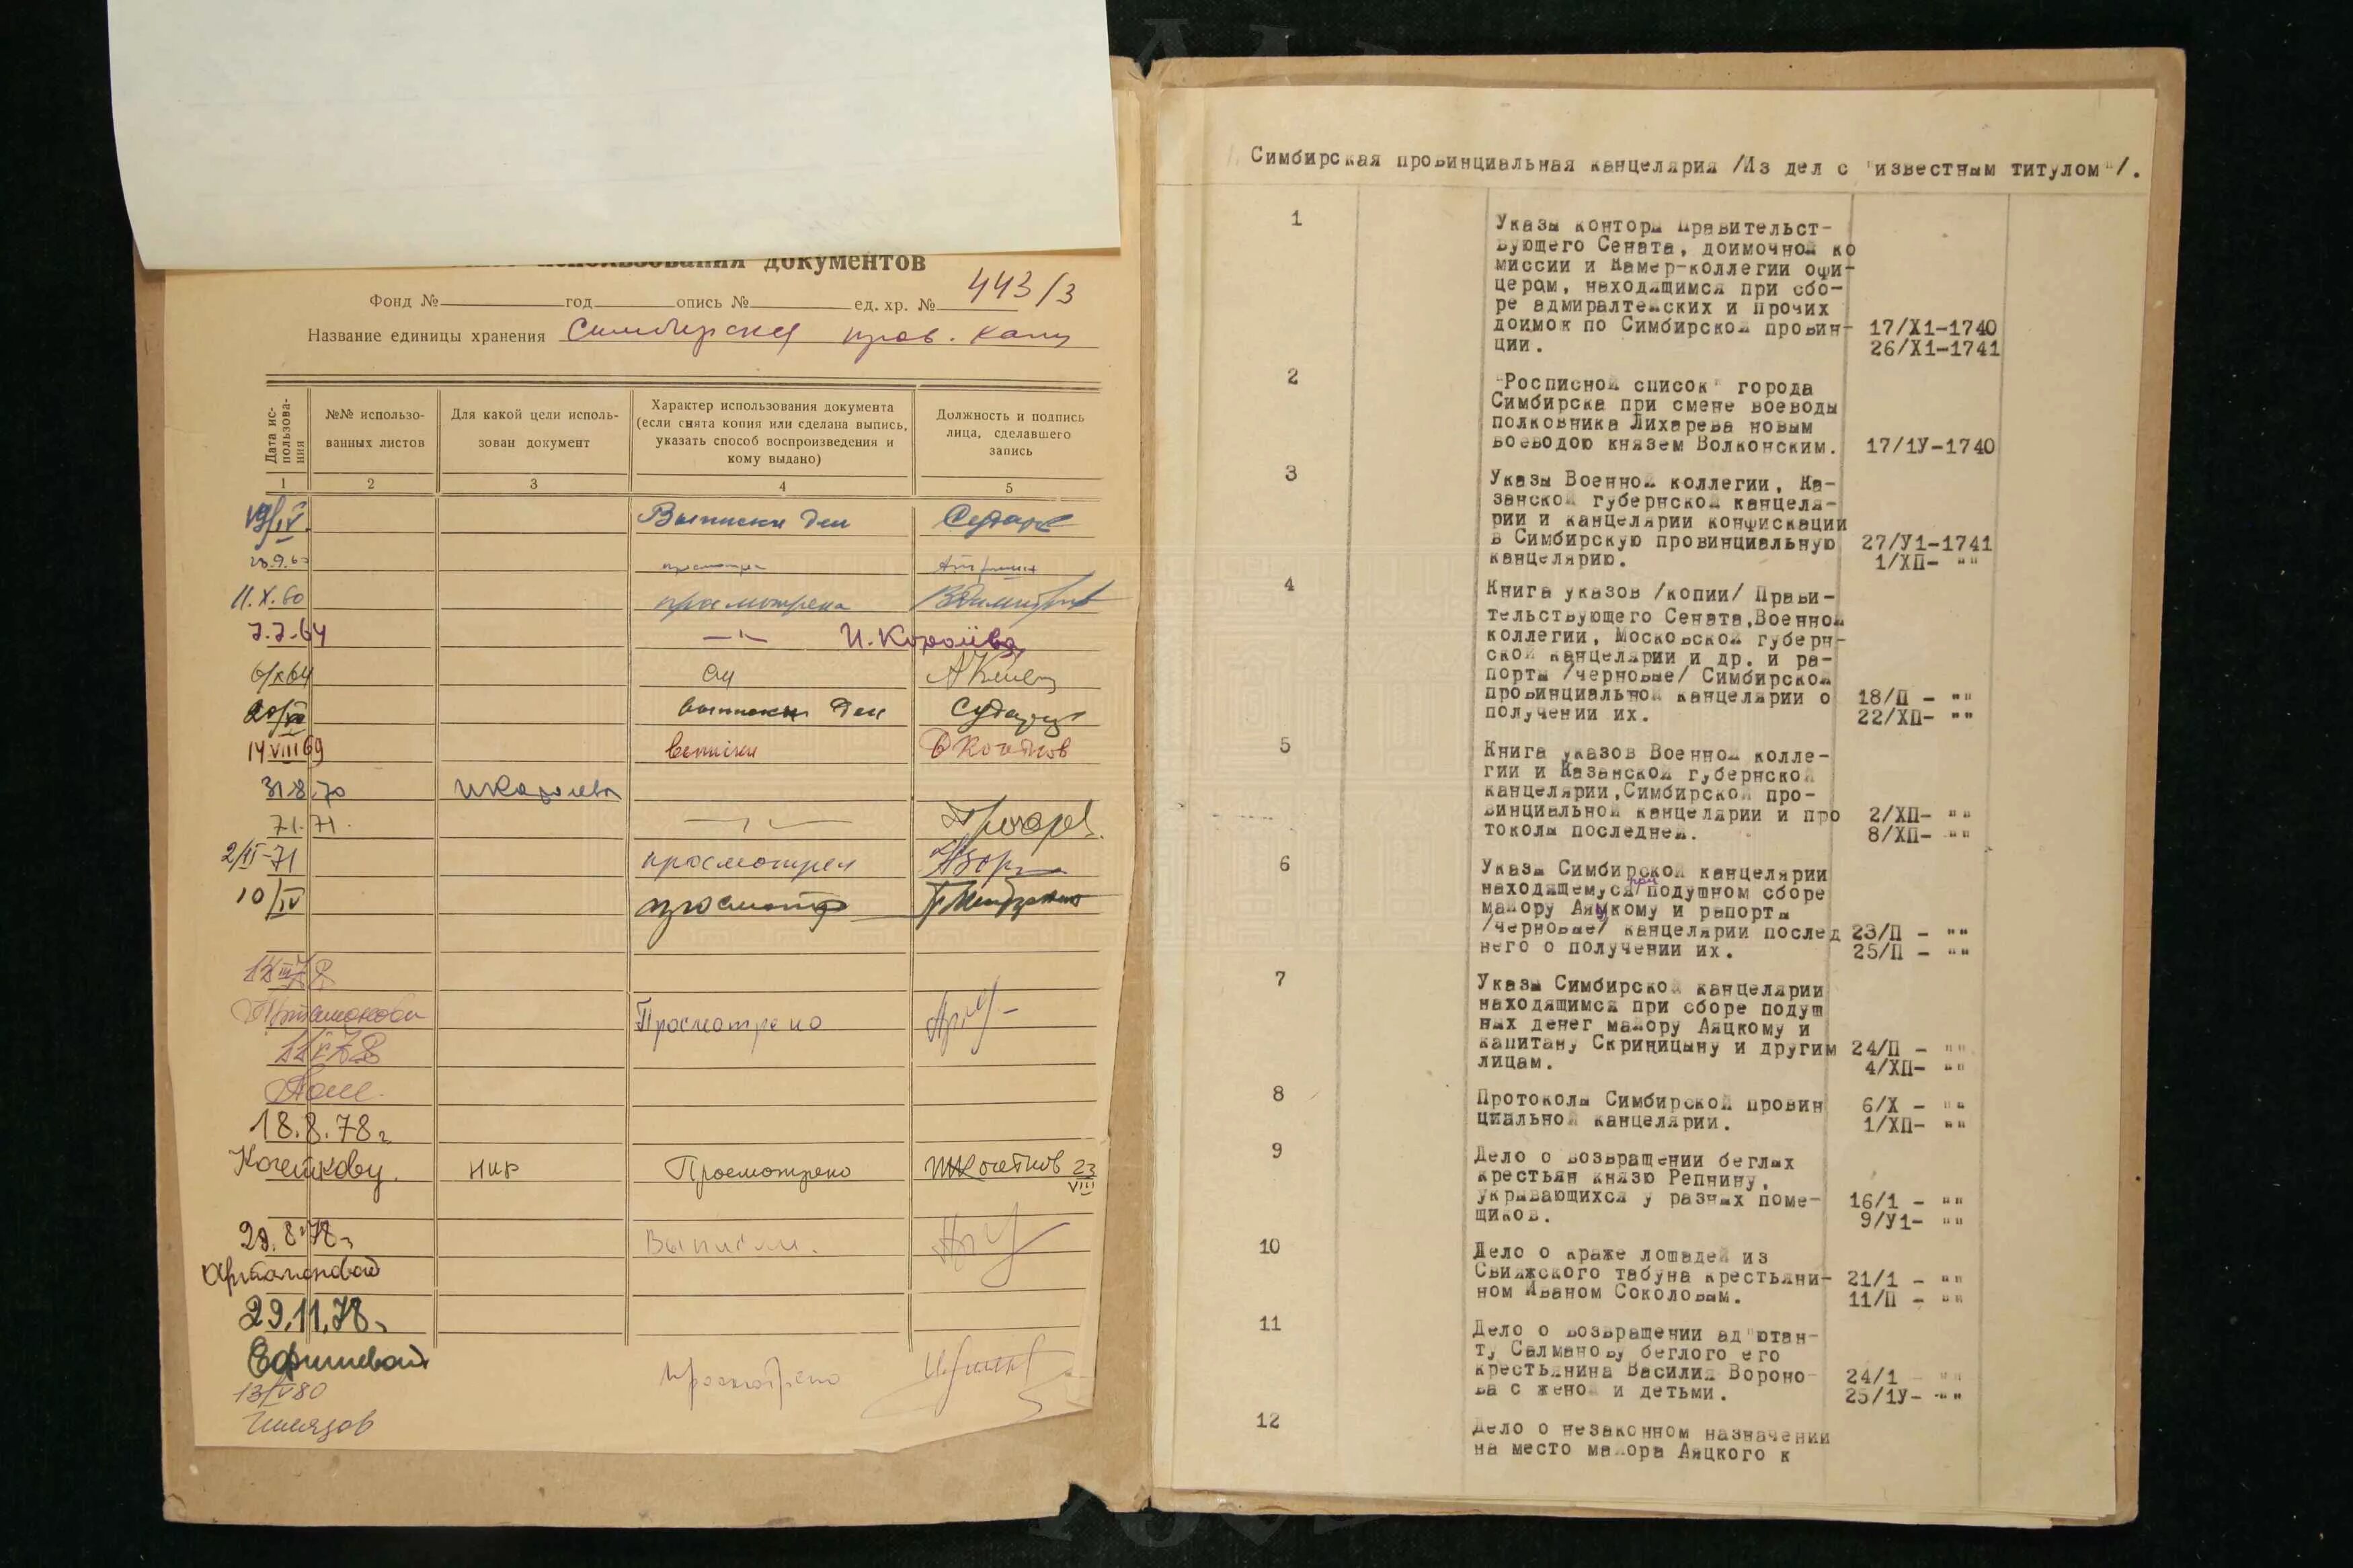 использования документов
Фонд № год опись № ед. хр. № 443/3
Название единицы хранения Симбирская пров. канц
Дата ис-
пользова-
ния
№№ использо-
ванных листов
Для какой цели исполь-
зован документ
Характер использования документа
(если снята копия или сделана выпись,
указать способ воспроизведения и
кому выдано)
Должность и подпись
лица, сделавшего
запись
1 2 3 4 5
Выписки дел
11.X.60 просмотрена
7.7.64 И. Королёва
выписки дел
14 VIII 69 выписки В Кочетков
31.8.70 И Королева
7.1.71.
2/II-71 просмотрел
10/IV просмотр
Артамонова Просмотрено
18.8.78 г
Кочеткову. нир Просмотрено Кочетков 23
VIII
29.8.78 г Выписки.
Артамоновой
29.11.78 г
Ефимевой просмотрено
13/V 80
Гилязов
Симбирская провинциальная канцелярия /Из дел с "известным титулом"/.
1 Указы конторы Правительст-
вующего Сената, доимочной ко
миссии и Камер-коллегии офи-
церам, находящимся при сбо-
ре адмиралтейских и прочих
доимок по Симбирской провин- 17/X1-1740
ции. 26/X1-1741
2 "Росписной список" города
Симбирска при смене воеводы
полковника Лихарева новым
воеводою князем Волконским. 17/1У-1740
3 Указы Военной коллегии, Ка-
занской губернской канцеля-
рии и канцелярии конфискации
в Симбирскую провинциальную 27/У1-1741
канцелярию. 1/ХП- ""
4 Книга указов /копии/ Прави-
тельствующего Сената,Военной
коллегии, Московской губерн-
ской канцелярии и др. и ра-
порты /черновые/ Симбирской
провинциальной канцелярии о 18/П - ""
получении их. 22/ХП- ""
5 Книга указов Военной колле-
гии и Казанской губернской
канцелярии,Симбирской про-
винциальной канцелярии и про 2/ХП- ""
токолы последней. 8/ХП- ""
6 Указы Симбирской канцелярии
находящемуся при подушном сборе
майору Аяцкому и рапорты
/черновые/ канцелярии послед 23/П - ""
него о получении их. 25/П - ""
7 Указы Симбирской канцелярии
находящимся при сборе подуш
ных денег майору Аяцкому и
капитану Скрипицыну и другим 24/П - ""
лицам. 4/ХП- ""
8 Протоколы Симбирской провин 6/Х - ""
циальной канцелярии. 1/ХП- ""
9 Дело о возвращении беглых
крестьян князю Репнину,
укрывающихся у разных поме- 16/1 - ""
щиков. 9/У1- ""
10 Дело о краже лошадей из
Свияжского табуна крестьяни- 21/1 - ""
ном Иваном Соколовым. 11/П - ""
11 Дело о возвращении ад"ютан-
ту Салманову беглого его
крестьянина Василия Вороно- 24/1 - ""
ва с женой и детьми. 25/1У- ""
12 Дело о незаконном назначении
на место майора Аяцкого к